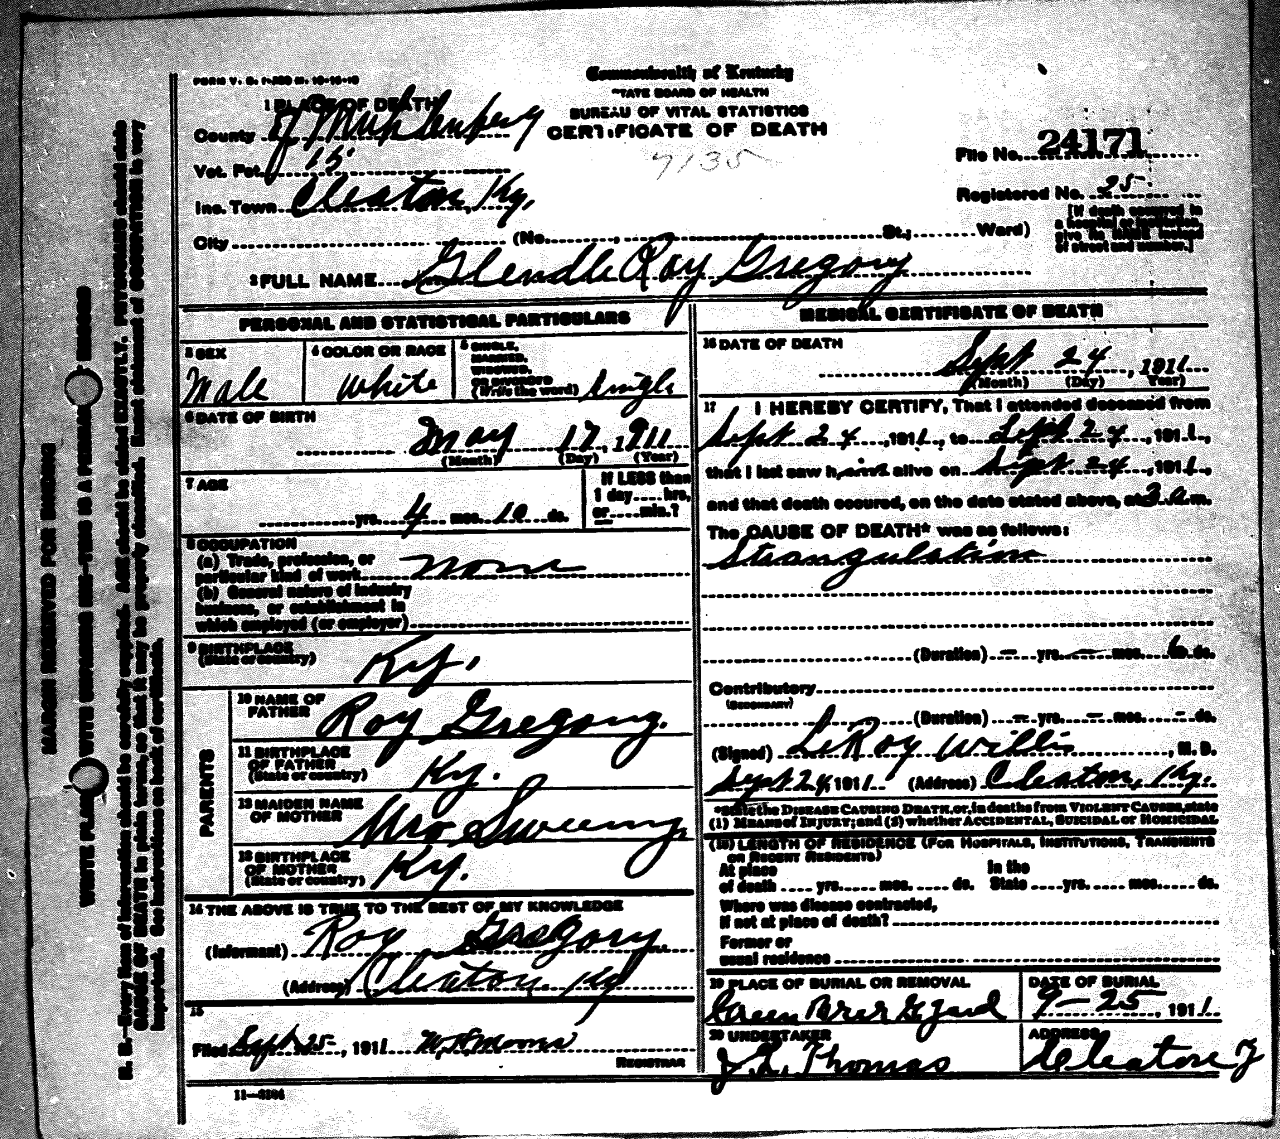 FORM V. S. 1-
Commonwealth of Kentucky
TATE BOARD OF HEALTH
BUREAU OF VITAL STATISTICS
CERTIFICATE OF DEATH
7135
1 PLACE OF DEATH
County of Muhlenberg
Vot. Pct. 15
Inc. Town Cleaton, Ky.
City (No. , St.; Ward)
File No. 24171
Registered No. 25
[If death occurred in
a hospital or institution,
give its NAME instead
of street and number.]
2 FULL NAME Glendle Roy Gregory
PERSONAL AND STATISTICAL PARTICULARS
3 SEX
Male
4 COLOR OR RACE
White
5 SINGLE,
MARRIED,
WIDOWED,
OR DIVORCED
(Write the word) Single
6 DATE OF BIRTH
May 17, 1911
(Month) (Day) (Year)
7 AGE
yrs. 4 mos. 10 ds.
If LESS than
1 day hrs.
or min.?
8 OCCUPATION
(a) Trade, profession, or
particular kind of work None
(b) General nature of industry
business, or establishment in
which employed (or employer)
9 BIRTHPLACE
(State or country) Ky.
PARENTS
10 NAME OF
FATHER Roy Gregory.
11 BIRTHPLACE
OF FATHER
(State or country) Ky.
12 MAIDEN NAME
OF MOTHER Mrs Sweeny,
13 BIRTHPLACE
OF MOTHER
(State or country) Ky.
14 THE ABOVE IS TRUE TO THE BEST OF MY KNOWLEDGE
(Informant) Roy Gregory.
(Address) Cleaton. Ky
15
Filed Sept 25, 1911 W. H. Moons
REGISTRAR
11—
MEDICAL CERTIFICATE OF DEATH
16 DATE OF DEATH
Sept 24, 1911
(Month) (Day) Year)
17 I HEREBY CERTIFY, That I attended deceased from
Sept 24, 1911, to Sept 24, 1911,
that I last saw h alive on Sept 24, 1911,
and that death occured, on the date stated above, at 3 a.m.
The CAUSE OF DEATH* was as follows:
Strangulation
(Duration) – yrs. – mos. ds.
Contributory
(SECONDARY)
(Duration) – yrs. – mos. – ds.
(Signed) LeRoy Willis, M. D.
Sept 24, 1911 (Address) Cleaton, Ky.
*State the DISEASE CAUSING DEATH, or, in deaths from VIOLENT CAUSES, state
(1) MEANS of INJURY; and (2) whether ACCIDENTAL, SUICIDAL or HOMICIDAL
(18) LENGTH OF RESIDENCE (FOR HOSPITALS, INSTITUTIONS, TRANSIENTS
OR RECENT RESIDENTS)
At place In the
of death yrs. mos. ds. State yrs. mos. ds.
Where was disease contracted,
if not at place of death?
Former or
usual residence
19 PLACE OF BURIAL OR REMOVAL
Green Brier
DATE OF BURIAL
9-25, 1911
20 UNDERTAKER
J. L. Thomas
ADDRESS
Cleaton
MARGIN RESERVED FOR BINDING
WRITE PLAINLY WITH UNFADING INK—THIS IS A PERMANENT RECORD
N. B.—Every item of information should be carefully supplied. AGE should be stated EXACTLY. PHYSICIANS should state
CAUSE OF DEATH in plain terms, so that it may be properly classified. Exact statement of OCCUPATION is very
important. See instructions on back of certificate.